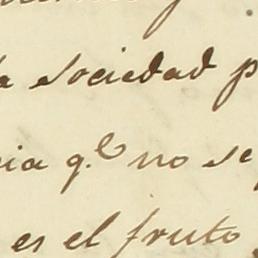 sociedad
q.e no se
es el fruto